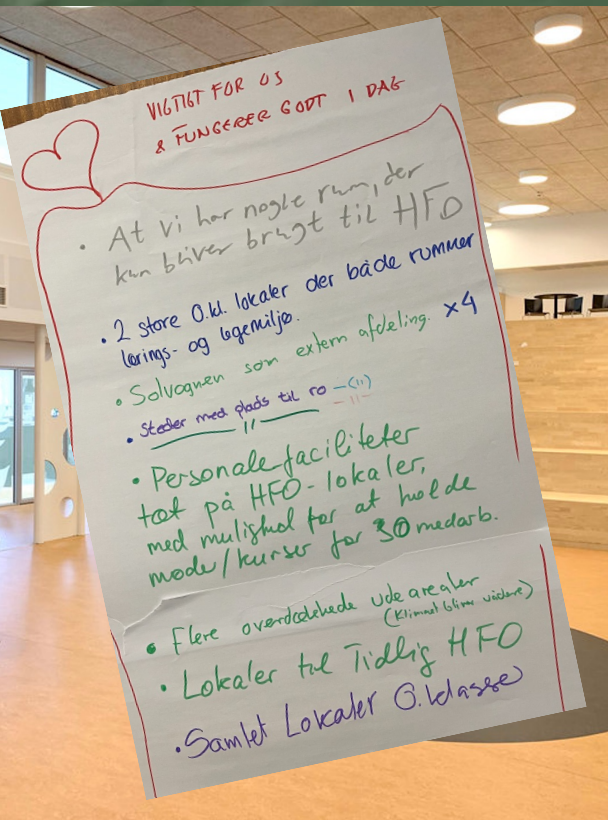 VIGTIGT FOR OS
& FUNGERER GODT I DAG
• At vi har nogle rum, der
kun bliver brugt til HFO
• 2 store 0.kl. lokaler der både rummer
lærings- og legemiljø.
• Solvognen som extern afdeling. x4
• Steder med plads til ro –(11)
– 11 –
11
• Personalefaciliteter
tæt på HFO-lokaler,
med mulighed for at holde
møde/kurser for 30 medarb.
• Flere overdækkede udearealer
(Klimaet bliver vådere)
• Lokaler til Tidlig HFO
• Samlet Lokaler 0.klasse